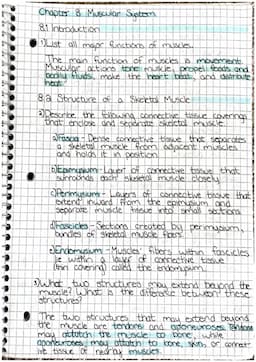 Chapter 8 Muscular System
8.1 Introduction
1) List all major functions of muscles.
The main function of muscles is movement.
Muscular actions tone muscle, propel foods and
bodily fluids, make the heart beat, and distribute
heat.
8.2 Structure of a Skeletal Muscle
2) Describe the following connective tissue coverings
that enclose and separate skeletal muscle
a) Fascia - Dense connective tissue that separates
a skeletal muscle from adjacent muscles
and holds it in position
b) Epimysium - Layer of connective tissue that
surrounds each skeletal muscle closely
c) Perimysium - Layers of connective tissue that
extend inward from the epimysium and
separate muscle tissue into small sections
d) Fascicles - Sections created by perimysium,
bundles of skeletal muscle fibers
e) Endomysium - Muscles' fibers within fascicles
lie within a layer of connective tissue
(thin covering) called the endomysium.
3) What two structures may extend beyond the
muscle? What is the difference between these
structures?
The two structures that may extend beyond
the muscle are tendons and aponeuroses. Tendons
may attach the muscle to bone, while
aponeuroses may attach to bone, skin, or connect
ive tissue of nearby muscles.